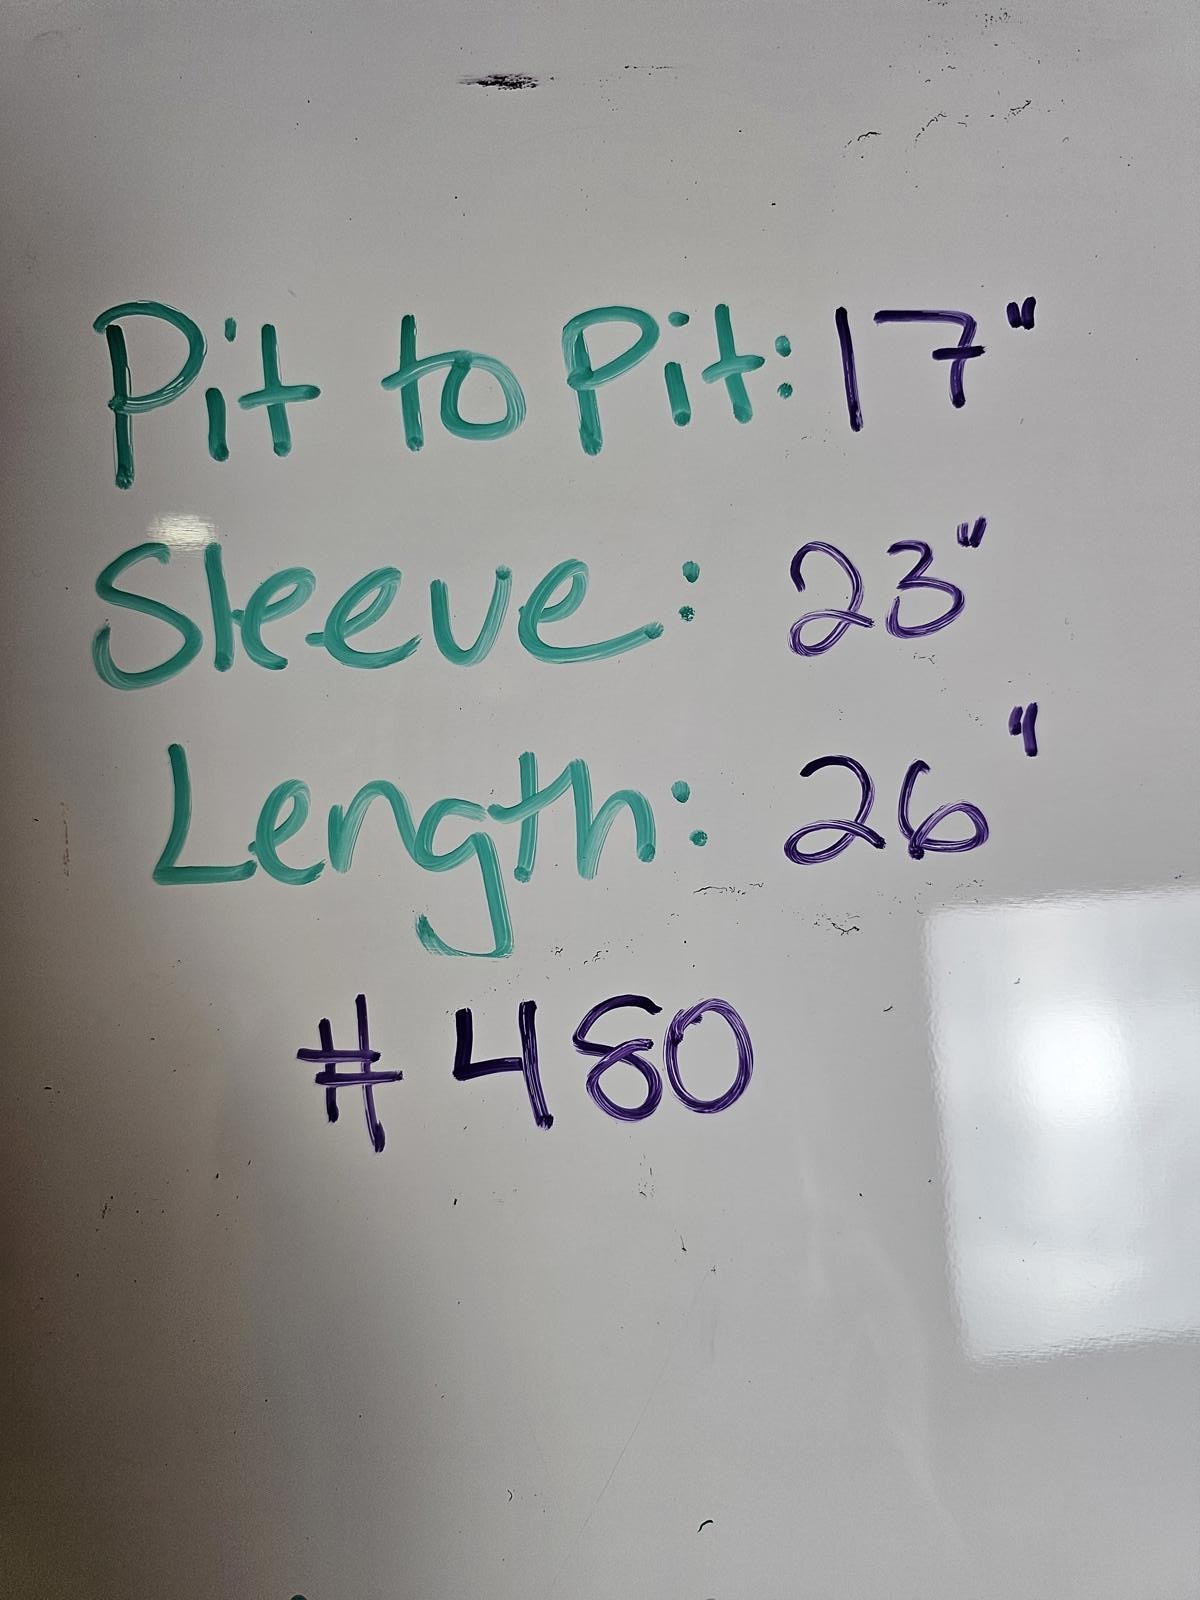 Pit to Pit: 17"
Sleeve: 23"
Length: 26"
# 480